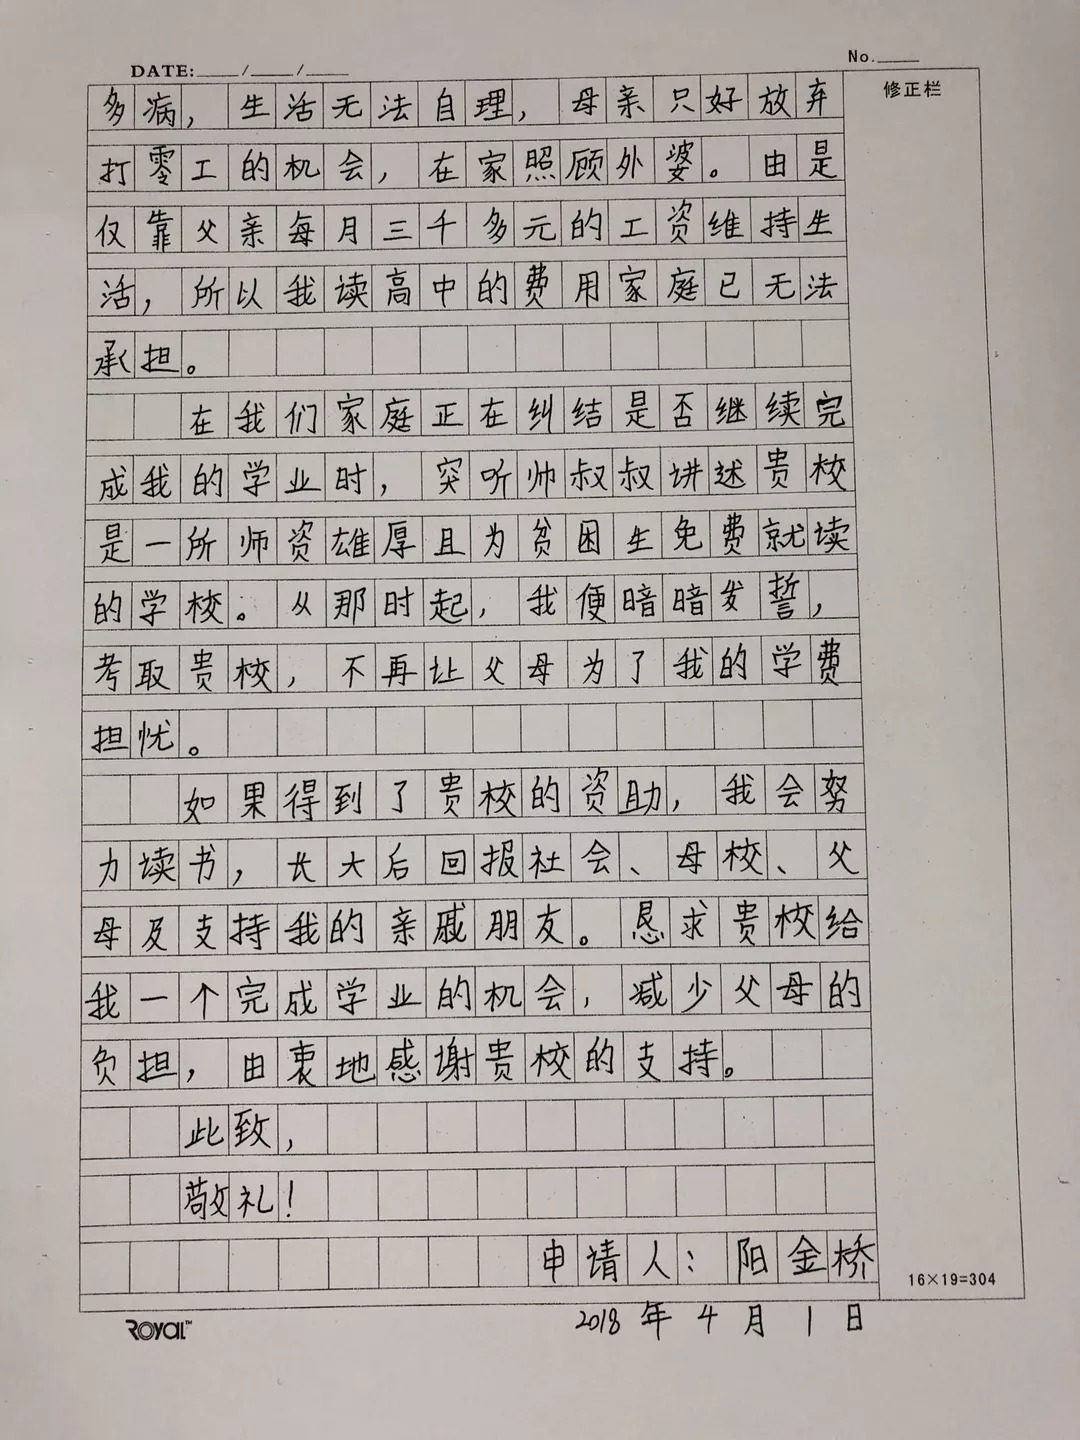 DATE:____/____/____
No.____
修正栏
多病，生活无法自理，母亲只好放弃
打零工的机会，在家照顾外婆。由是
仅靠父亲每月三千多元的工资维持生
活，所以我读高中的费用家庭已无法
承担。
在我们家庭正在纠结是否继续完
成我的学业时，突听帅叔叔讲述贵校
是一所师资雄厚且为贫困生免费就读
的学校。从那时起，我便暗暗发誓，
考取贵校，不再让父母为了我的学费
担忧。
如果得到了贵校的资助，我会努
力读书，长大后回报社会、母校、父
母及支持我的亲戚朋友。恳求贵校给
我一个完成学业的机会，减少父母的
负担，由衷地感谢贵校的支持。
此致，
敬礼！
申请人：阳金桥
16×19=304
ROYAL™
2018年4月1日